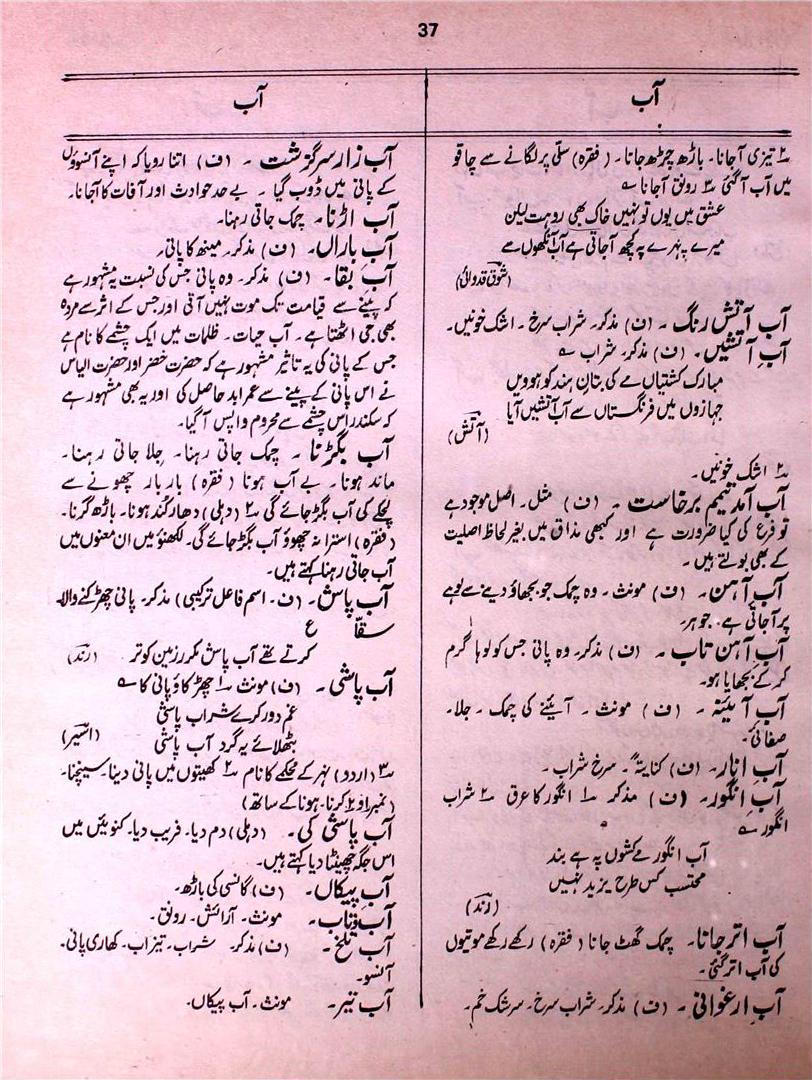 37
آب
آب
؎۲ تیزی آجانا۔ باڑھ چڑھ جانا۔ (فقرہ) سلّی پر لگانے سے چاقو
میں آب آگئی ؎۳ رونق آجانا ؎
عشق میں یوں تو نہیں خاک بھی روہت لیکن
میرے چہرے پہ کچھ آجاتی ہے آب آنکھوں سے
(شوق قدوائی)
آب آتش رنگ ۔ (ف) مذکر۔ شراب سرخ ۔ اشک خونیں۔
آبِ آتشیں۔ (ف) مذکر۔ شراب ؎
مبارک کشتیاں مے کی بتانِ ہند کو ہوویں
جہازوں میں فرنگستاں سے آب آتشیں آیا
(آتش)
؎۲ اشک خونیں۔
آب آمد تیمم برخاست ۔ (ف) مثل۔ اصل موجود ہے
تو فرع کی کیا ضرورت ہے اور کبھی مذاق میں بغیر لحاظ اصلیت
کے بھی بولتے ہیں ۔
آبِ آہن۔ (ف) مونث۔ وہ چمک جو بجھاؤ دینے سے لوہے
پر آجاتی ہے۔ جوہر۔
آبِ آہن تاب ۔ (ف) مذکر۔ وہ پانی جس کو لوہا گرم
کرکے بجھایا ہو۔
آب آئینہ ۔ (ف) مونث ۔ آئینے کی چمک ۔ جلا۔
صفائی۔
آبِ انار۔ (ف) کنایتہً۔ سرخ شراب ۔
آبِ انگور۔ (ف) مذکر ؎۱ انگور کا عرق ؎۲ شراب
انگور ؎
آب انگور مے کشوں پہ ہے بند
محتسب کس طرح یزید نہیں
(رند)
آب اتر جانا۔ چمک گھٹ جانا (فقرہ) رکھے رکھے موتیوں
کی آب اتر گئی۔
آبِ ارغوانی ۔ (ف) مذکر۔ شراب سرخ۔ سرشک خم۔
آب زار سرگزشت ۔ (ف) اتنا رویا کہ اپنے آنسوؤں
کے پانی میں ڈوب گیا ۔ بے حد حوادث اور آفات کا آجانا۔
آب اڑنا۔ چمک جاتی رہنا۔
آب باراں۔ (ف) مذکر۔ مینھ کا پانی۔
آبِ بقا۔ (ف) مذکر۔ وہ پانی جس کی نسبت مشہور ہے
کہ پینے سے قیامت تک موت نہیں آتی اور جس کے اثر سے مردہ
بھی جی اٹھتا ہے۔ آب حیات۔ ظلمات میں ایک چشمے کا نام ہے
جس کے پانی کی یہ تاثیر مشہور ہے کہ حضرت خضر اور حضرت الیاس
نے اس پانی کے پینے سے عمر ابد حاصل کی اور یہ بھی مشہور ہے
کہ سکندر اس چشمے سے محروم واپس آگیا۔
آب بگڑنا ۔ چمک جاتی رہنا۔ جِلا جاتی رہنا۔
ماند ہونا۔ بے آب ہونا (فقرہ) بار بار چھونے سے
لچکے کی آب بگڑ جائے گی ؎۲ (دہلی) دھار کند ہونا۔ باڑھ گرنا۔
(فقرہ) استرا نہ چھوؤ آب بگڑ جائے گی۔ لکھنؤ میں ان معنوں میں
آب جاتی رہنا کہتے ہیں۔
آب پاش۔ (ف۔ اسم فاعل ترکیبی) مذکر۔ پانی چھڑکنے والا۔
سقّا ع
کرتے تھے آب پاش مکرر زمین کو تر (رند)
آب پاشی۔ (ف) مونث ؎۱ چھڑکاؤ پانی کا ؎
غم دور کرے شراب پاشی
بٹھلائے یہ گرد آب پاشی (اسیر)
؎۳ (اردو) نہر کے محکمے کا نام ؎۲ کھیتوں میں پانی دینا۔ سینچنا۔
(نمبر ۱ و ۲ کرنا۔ ہونا کے ساتھ)
آب پاشی کی۔ (دہلی) دم دیا۔ فریب دیا۔ لکھنؤ میں
اس جگہ چھینٹا دیا کہتے ہیں۔
آبِ پیکاں۔ (ف) گانسی کی باڑھ۔
آب و تاب۔ مونث۔ آرائش۔ رونق۔
آب تلخ۔ (ف) مذکر۔ شراب۔ تیزاب۔ کھاری پانی۔
آنسو۔
آب تیر۔ مونث۔ آب پیکاں۔